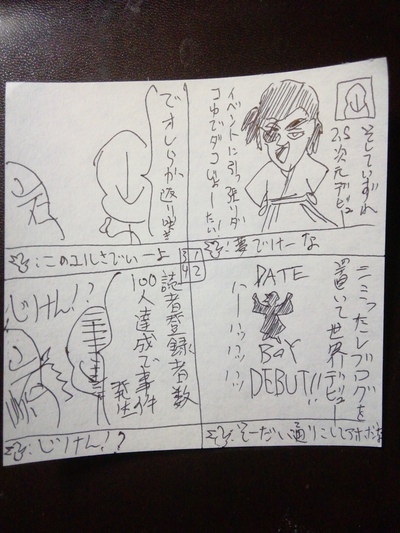 そしていずれ
2.5次元デビュー
イベントに引っ張りダコ
ゆでダコじょーたい!
:夢でけーな
ニミったレブログを
置いて世界デビュー
DATE
BOY
DEBUT!!
ハーハッハッハッ
:そーだい通りこしてアホだな
でオレらが返り咲き
:このユルさでぃーよ
3 1
4 2
読者登録者数
100人達成で事件
発生
じけん!?
:じけん!?